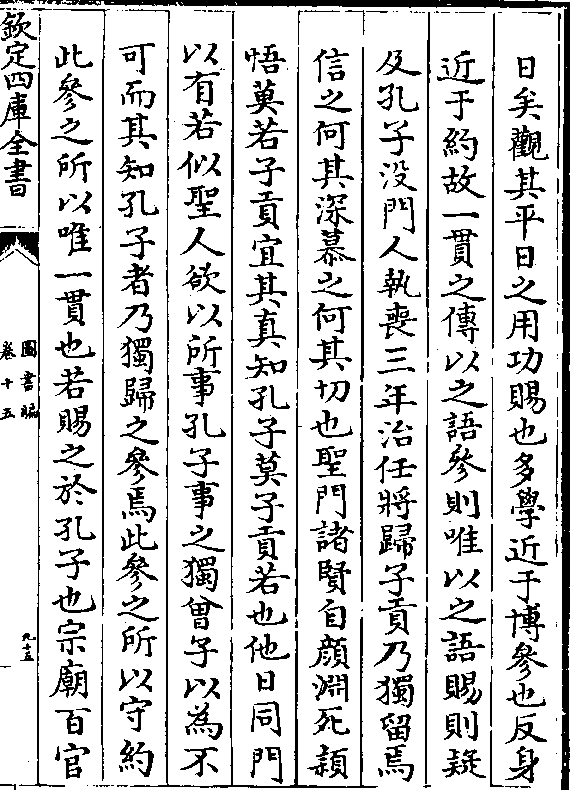 日矣觀其平日之用功賜也多學近于博參也反身
近于約故一貫之傳以之語參則唯以之語賜則疑
及孔子没門人執喪三年治任將歸子貢乃獨留焉
信之何其深慕之何其切也聖門諸賢自顔淵死穎
悟莫若子貢宜其真知孔子莫子貢若也他日同門
以有若似聖人欲以所事孔子事之獨曾子以為不
可而其知孔子者乃獨歸之參焉此參之所以守約
此參之所以唯一貫也若賜之於孔子也宗廟百官
欽定四庫全書
圖書編
卷十五
九十五